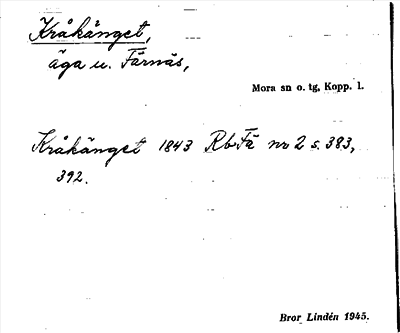 Kråkänget,
äga u. Färnäs,
Mora sn o. tg, Kopp. l.
Kråkänget 1843 Rb Fä nr 2 s. 383,
392.
Bror Lindén 1945.